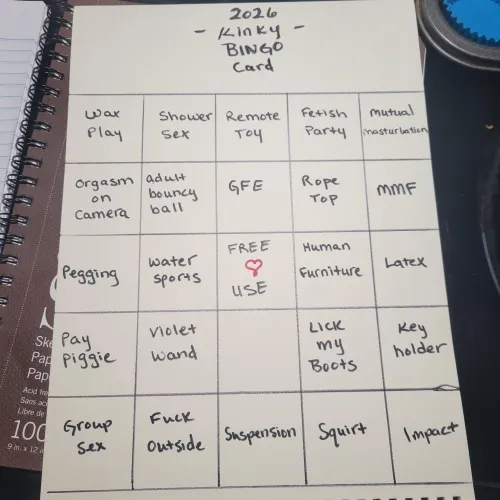 2026
- Kinky -
BINGO
Card
Wax
Play
Shower
Sex
Remote
Toy
Fetish
Party
mutual
masturbation
Orgasm
on
Camera
adult
bouncy
ball
GFE
Rope
Top
MMF
Pegging
water
sports
FREE
USE
Human
Furniture
Latex
Pay
Piggie
Violet
Wand
Lick
my
Boots
Key
holder
Group
Sex
Fuck
Outside
Suspension
Squirt
Impact
100
9 in. x 12 in